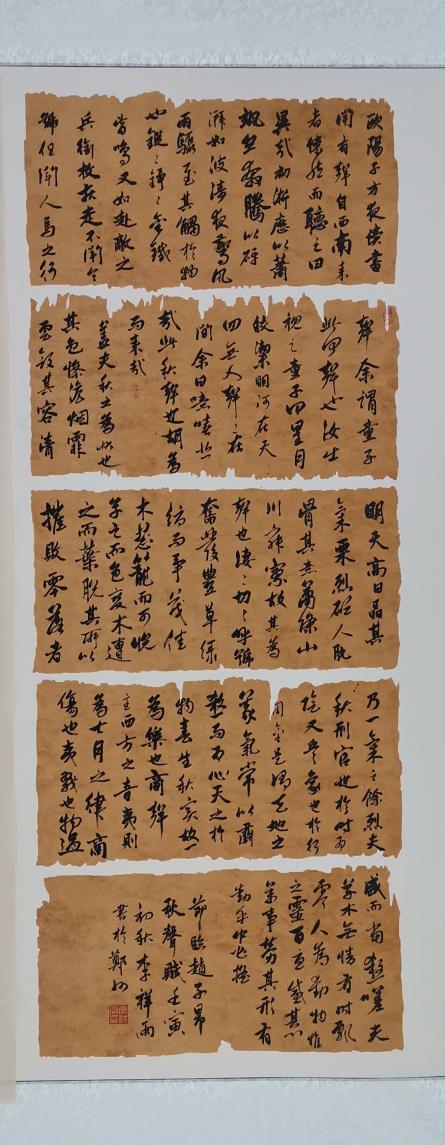 歐陽子方夜讀書
聞有聲自西南來
者悚然而聽之曰
異哉初淅瀝以蕭
颯忽奔騰以砰
湃如波濤夜驚風
雨驟至其觸於物
也鏦〻錚〻金鐵
皆鳴又如赴敵之
兵銜枚疾走不聞令
號但聞人馬之行
聲余謂童子
此何聲也汝出
視之童子曰星月
皎潔明河在天
四無人聲〻在
間余曰噫嘻悲
哉此秋聲也胡為
而來哉
蓋夫秋之為狀也
其色慘淡烟霏
雲斂其容清
明天高日晶其
氣栗烈砭人肌
骨其意蕭條山
川寂寥故其為
聲也淒〻切〻呼號
奮發豐草綠
縟而爭茂佳
木蔥籠而可悅
草之而色變木遭
之而葉脫其所以
摧敗零落者
乃一氣之餘烈夫
秋刑官也於時為
陰又兵象也於行
用金是謂天地之
義氣常以肅
殺而為心天之於
物春生秋實故
為樂也商聲
主西方之音夷則
為七月之律商
傷也夷戮也物過
盛而當殺嗟夫
草木無情有時飄
零人為動物惟
之靈百憂感其心
萬事勞其形有
動乎中必搖
節臨趙子昂
秋聲賦壬寅
初秋李祥雨
書於鄭州